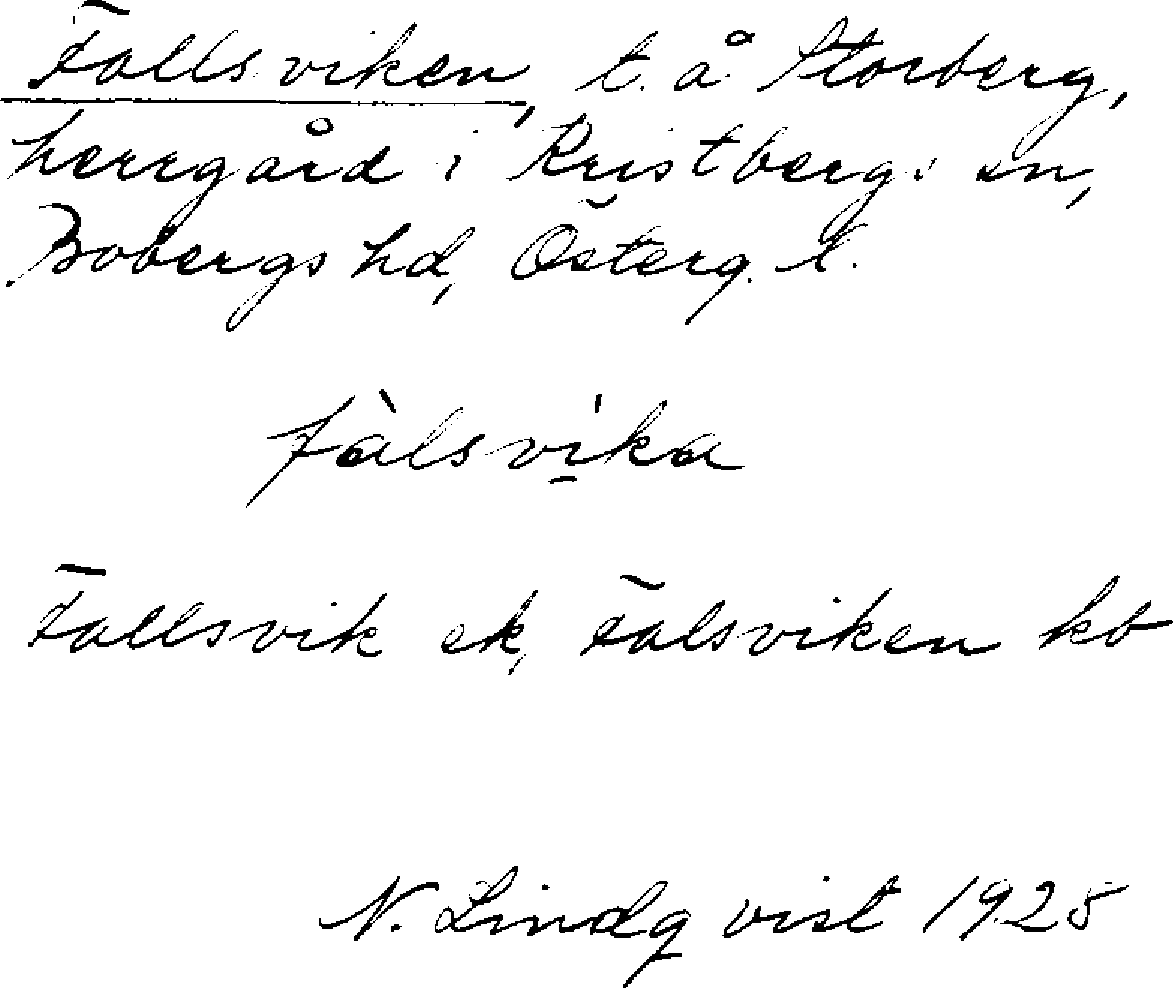 Fallsviken, t. å Storberg,
herrgård i Kristbergs sn,
Bobergs hd, Österg. l.
fàlsvi̠ka
Fallsvik ek, Falsviken kb
N. Lindqvist 1925